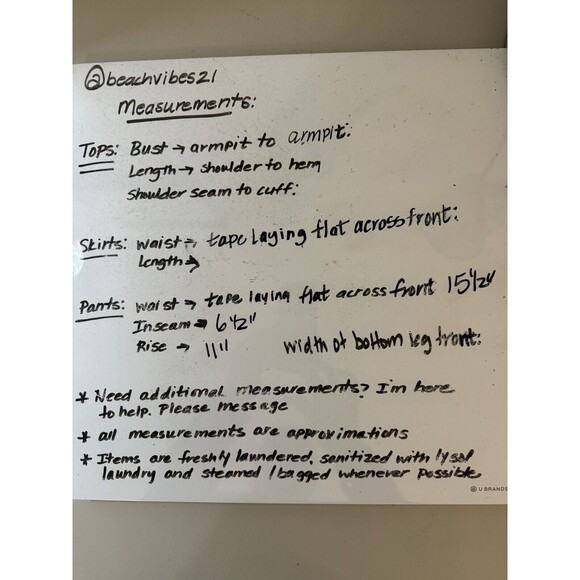 @beachvibes21
Measurements:
Tops: Bust → armpit to armpit:
Length → shoulder to hem
Shoulder seam to cuff:
Skirts: waist → tape laying flat across front:
Length →
Pants: waist → tape laying flat across front 15 1/2"
Inseam → 6 1/2"
Rise → 11" width of bottom leg front:
* Need additional measurements? I'm here
to help. Please message
* all measurements are approximations
* Items are freshly laundered, sanitized with lysol
laundry and steamed / bagged whenever possible
U BRANDS